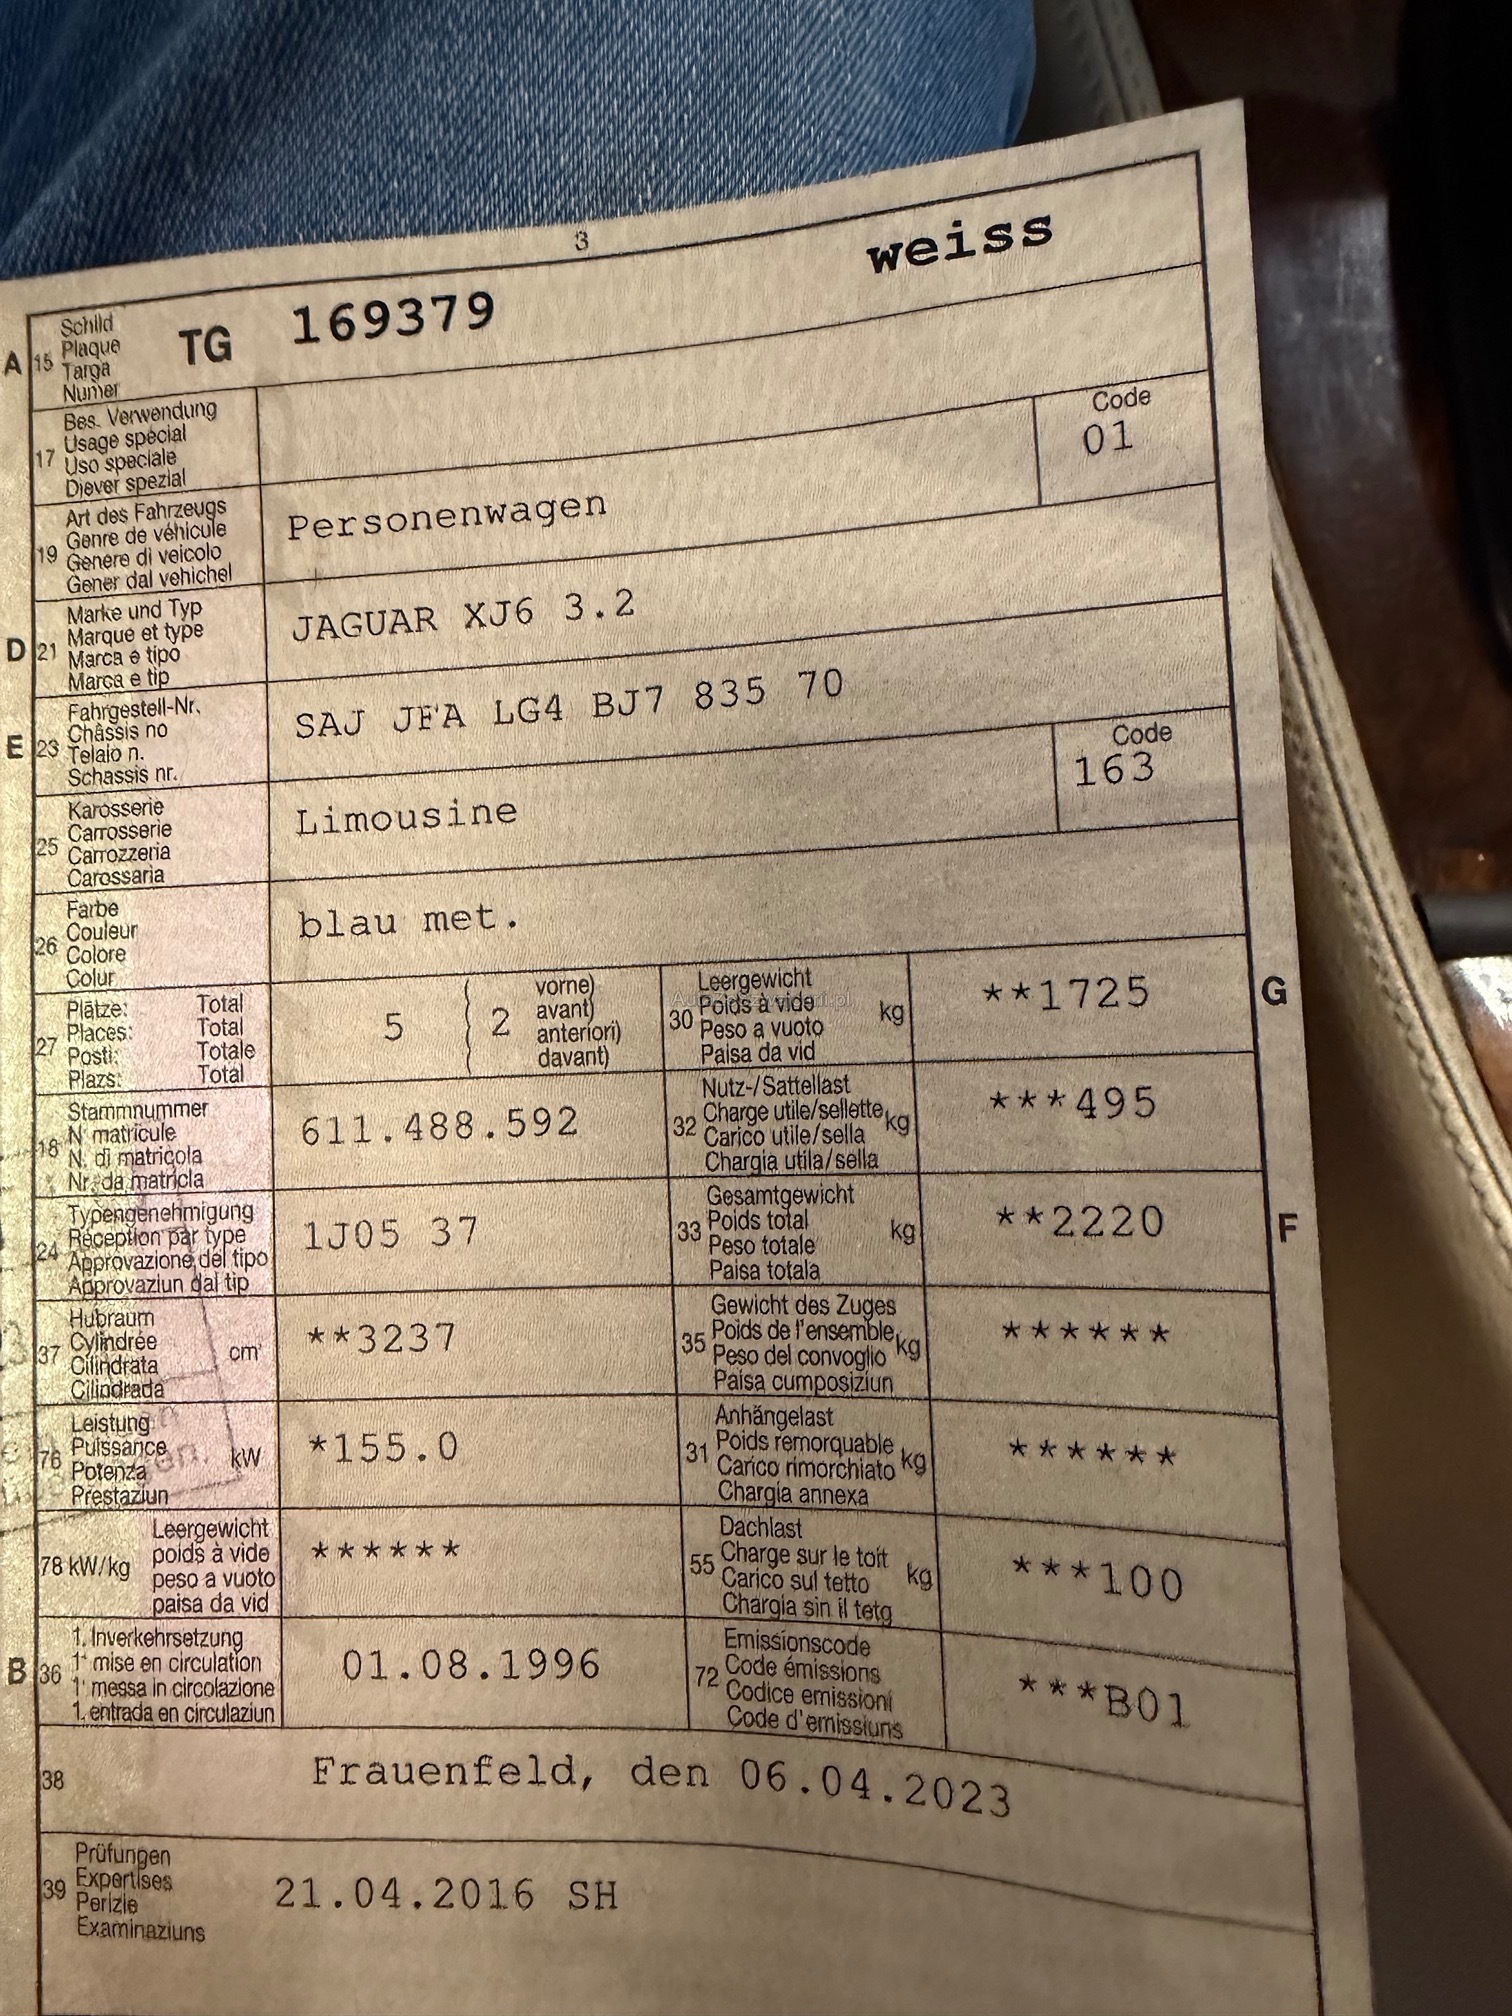 3
weiss
A 15 Schild Plaque Targa Numer TG 169379
17 Bes. Verwendung Usage spécial Uso speciale Diever spezial
19 Art des Fahrzeugs Genre de véhicule Genere di veicolo Gener dal vehichel Personenwagen Code 01
D 21 Marke und Typ Marque et type Marca e tipo Marca e tip JAGUAR XJ6 3.2
E 23 Fahrgestell-Nr. Châssis no Telaio n. Schassis nr. SAJ JFA LG4 BJ7 835 70
25 Karosserie Carrosserie Carrozzeria Carossaria Limousine Code 163
26 Farbe Couleur Colore Colur blau met.
27 Plätze: Total Places: Total Posti: Totale Plazs: Total 5 2 vorne) avant) anteriori) davant)
30 Leergewicht Poids à vide Peso a vuoto Paisa da vid kg **1725 G
18 Stammnummer N° matricule N. di matricola Nr. da matricla 611.488.592
32 Nutz-/Sattellast Charge utile/sellette Carico utile/sella Chargia utila/sella kg ***495
24 Typengenehmigung Réception par type Approvazione del tipo Approvaziun dal tip 1J05 37
33 Gesamtgewicht Poids total Peso totale Paisa totala kg **2220 F
37 Hubraum Cylindrée Cilindrata Cilindrada cm³ **3237
35 Gewicht des Zuges Poids de l'ensemble Peso del convoglio Paisa cumposiziun kg ******
76 Leistung Puissance Potenza Prestaziun kW *155.0
31 Anhängelast Poids remorquable Carico rimorchiato Chargia annexa kg ******
78 kW/kg Leergewicht poids à vide peso a vuoto paisa da vid ******
55 Dachlast Charge sur le toit Carico sul tetto Chargia sin il tetg kg ***100
B 36 1. Inverkehrsetzung 1° mise en circulation 1° messa in circolazione 1. entrada en circulaziun 01.08.1996
72 Emissionscode Code émissions Codice emissioni Code d'emissiuns ***B01
38 Frauenfeld, den 06.04.2023
39 Prüfungen Expertises Perizie Examinaziuns 21.04.2016 SH